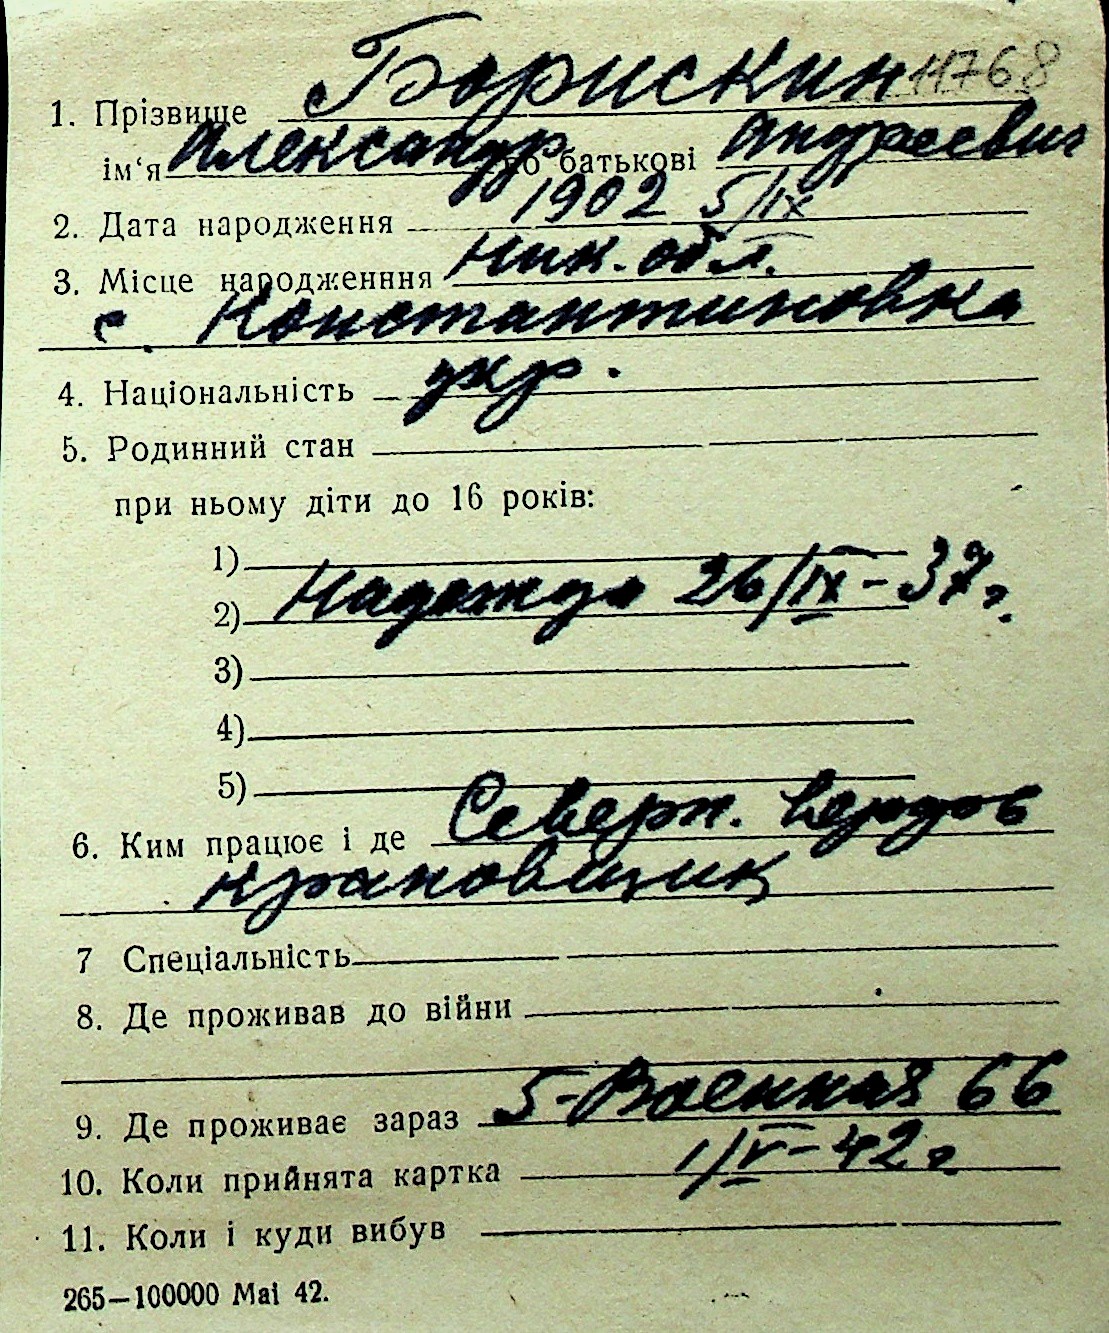 1. Прізвище Борискин 11768
ім‘я Александр по батькові Андреевич
2. Дата народження 1902 5/IX
3. Місце народженння Ник. обл.
с. Константиновка
4. Національність укр.
5. Родинний стан
при ньому діти до 16 років:
1)
2) Надежда 26/IX-37 г.
3)
4)
5)
6. Ким працює і де Северн.
крановщик
7 Спеціальність
8. Де проживав до війни
9. Де проживає зараз 5-Военная 66
10. Коли прийнята картка 1/V-42 г.
11. Коли і куди вибув
265—100000 Маі 42.